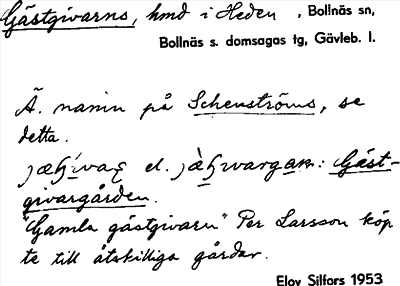 Gästgivarns, hmd i Heden, Bollnäs sn,
Bollnäs s. domsagas tg, Gävleb. l.
Ä. namn på Schenströms, se
detta.
el. : Gäst-
givargården.
"Gamla gästgivarn" Per Larsson köp
te till åtskilliga gårdar.
Eloy Silfors 1953